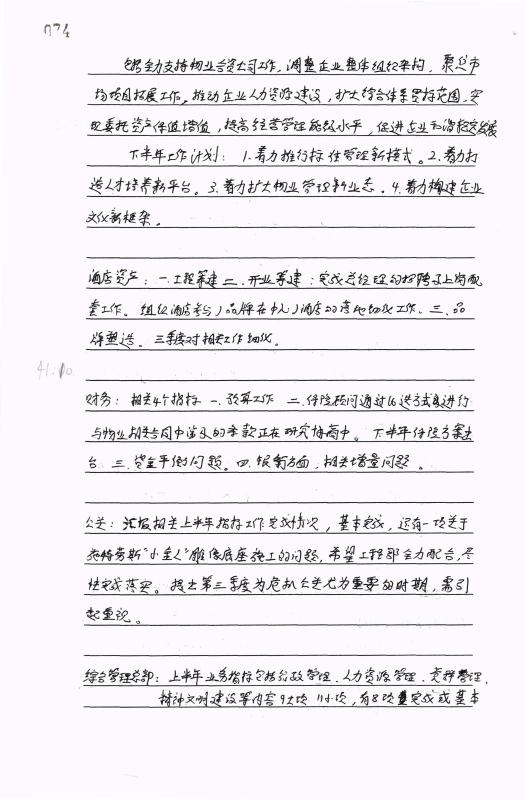 074
全力支持物业合资公司工作，调整企业整体组织架构，聚焦市
场项目拓展工作。推动企业人力资源建设，扩大综合体系贯标范围，实
现委托资产保值增值，提高经营管理能级水平，促进企业和谐稳定发展
下半年工作计划：1.着力推行标准管理新模式。2.着力打
造人才培养新平台。3.着力扩大物业管理新业态。4.着力构建企业
文化新框架。
酒店资产：一.工程筹建 二.开业筹建：完成总经理的招聘及上岗配
套工作。组织酒店参与品牌在中心酒店的落地细化工作。三.品
牌塑造。三季度对相关工作细化。
41:10
财务：相关4个指标 一.预算工作 二.保险顾问通过比选方式已进行
与物业相关合同中涉及的条款正在研究协商中。下半年保险方案出
台 三.资金平衡问题。四.银团方面，相关增量问题。
公关：汇报相关上半年指标工作完成情况，基本完成，还有一项关于
劳斯“小星人”雕像底座施工的问题，希望工程部全力配合，尽
快完成落实。提出第三季度为危机公关尤为重要的时期，需引
起重视。
综合管理总部：上半年业务指标包括行政管理、人力资源管理、党群管理、
精神文明建设等内容9大项 小项，有8项已完成或基本